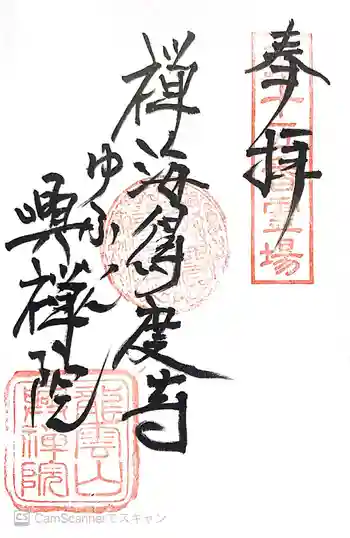 奉拝
霊場
禅海得度寺
ゆふいん
興禅院
龍雲山
興禅院
CS CamScannerでスキャン